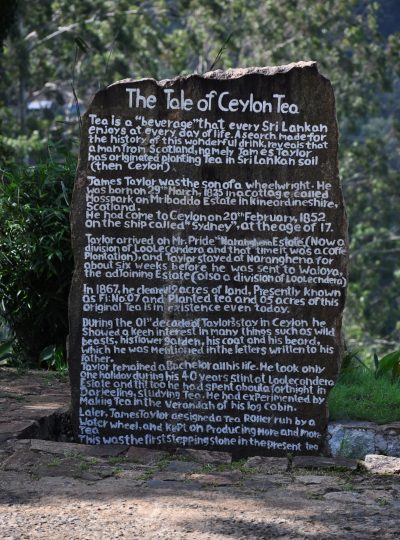 The Tale of Ceylon Tea
Tea is a "beverage" that every Sri Lankan
enjoys at every day of life. A search made for
the history of this wonderful drink, reveals that
a man from Scotland, namely James Taylor
has originated planting Tea in Sri Lankan soil
(then Ceylon)
James Taylor was the son of a wheelwright. He
was born on 29th March, 1835 in a Cottage called
Mosspark on Mr. Ibadda Estate in Kineardineshire,
Scotland.
He had come to Ceylon on 20th February, 1852
on the ship called "Sydney", at the age of 17.
Taylor arrived on Mr. Pride "Naranghena Estate (Now a
division of Loolecondera and that time it was a coffee
Plantation), and Taylor stayed at Naranghena for
about six weeks before he was sent to Waloya,
the adjoining Estate (also a division of Loolecondera)
In 1867, he cleared 9 acres of land, Presently known
as Fi: No. 07 and Planted tea and 05 acres of this
original Tea is in existence even today.
During the 01st decade of Taylor's stay in Ceylon he
Showed a keen interest in many things such as wild
beasts, his flower garden, his coat and his beard,
which he was mentioned in the letters written to his
Father.
Taylor remained a Bachelor all his life. He took only
one holiday during his 40 years stint at Loolecondera
Estate and thi too he had spent about a fortnight in
Darjeeling, studying Tea. He had experimented by
Making Tea in the Verandah of his log Cabin.
Later, James Taylor designed a Tea Roller run by a
Water wheel, and kept on Producing More and more
Tea
This was the first stepping stone in the present tea